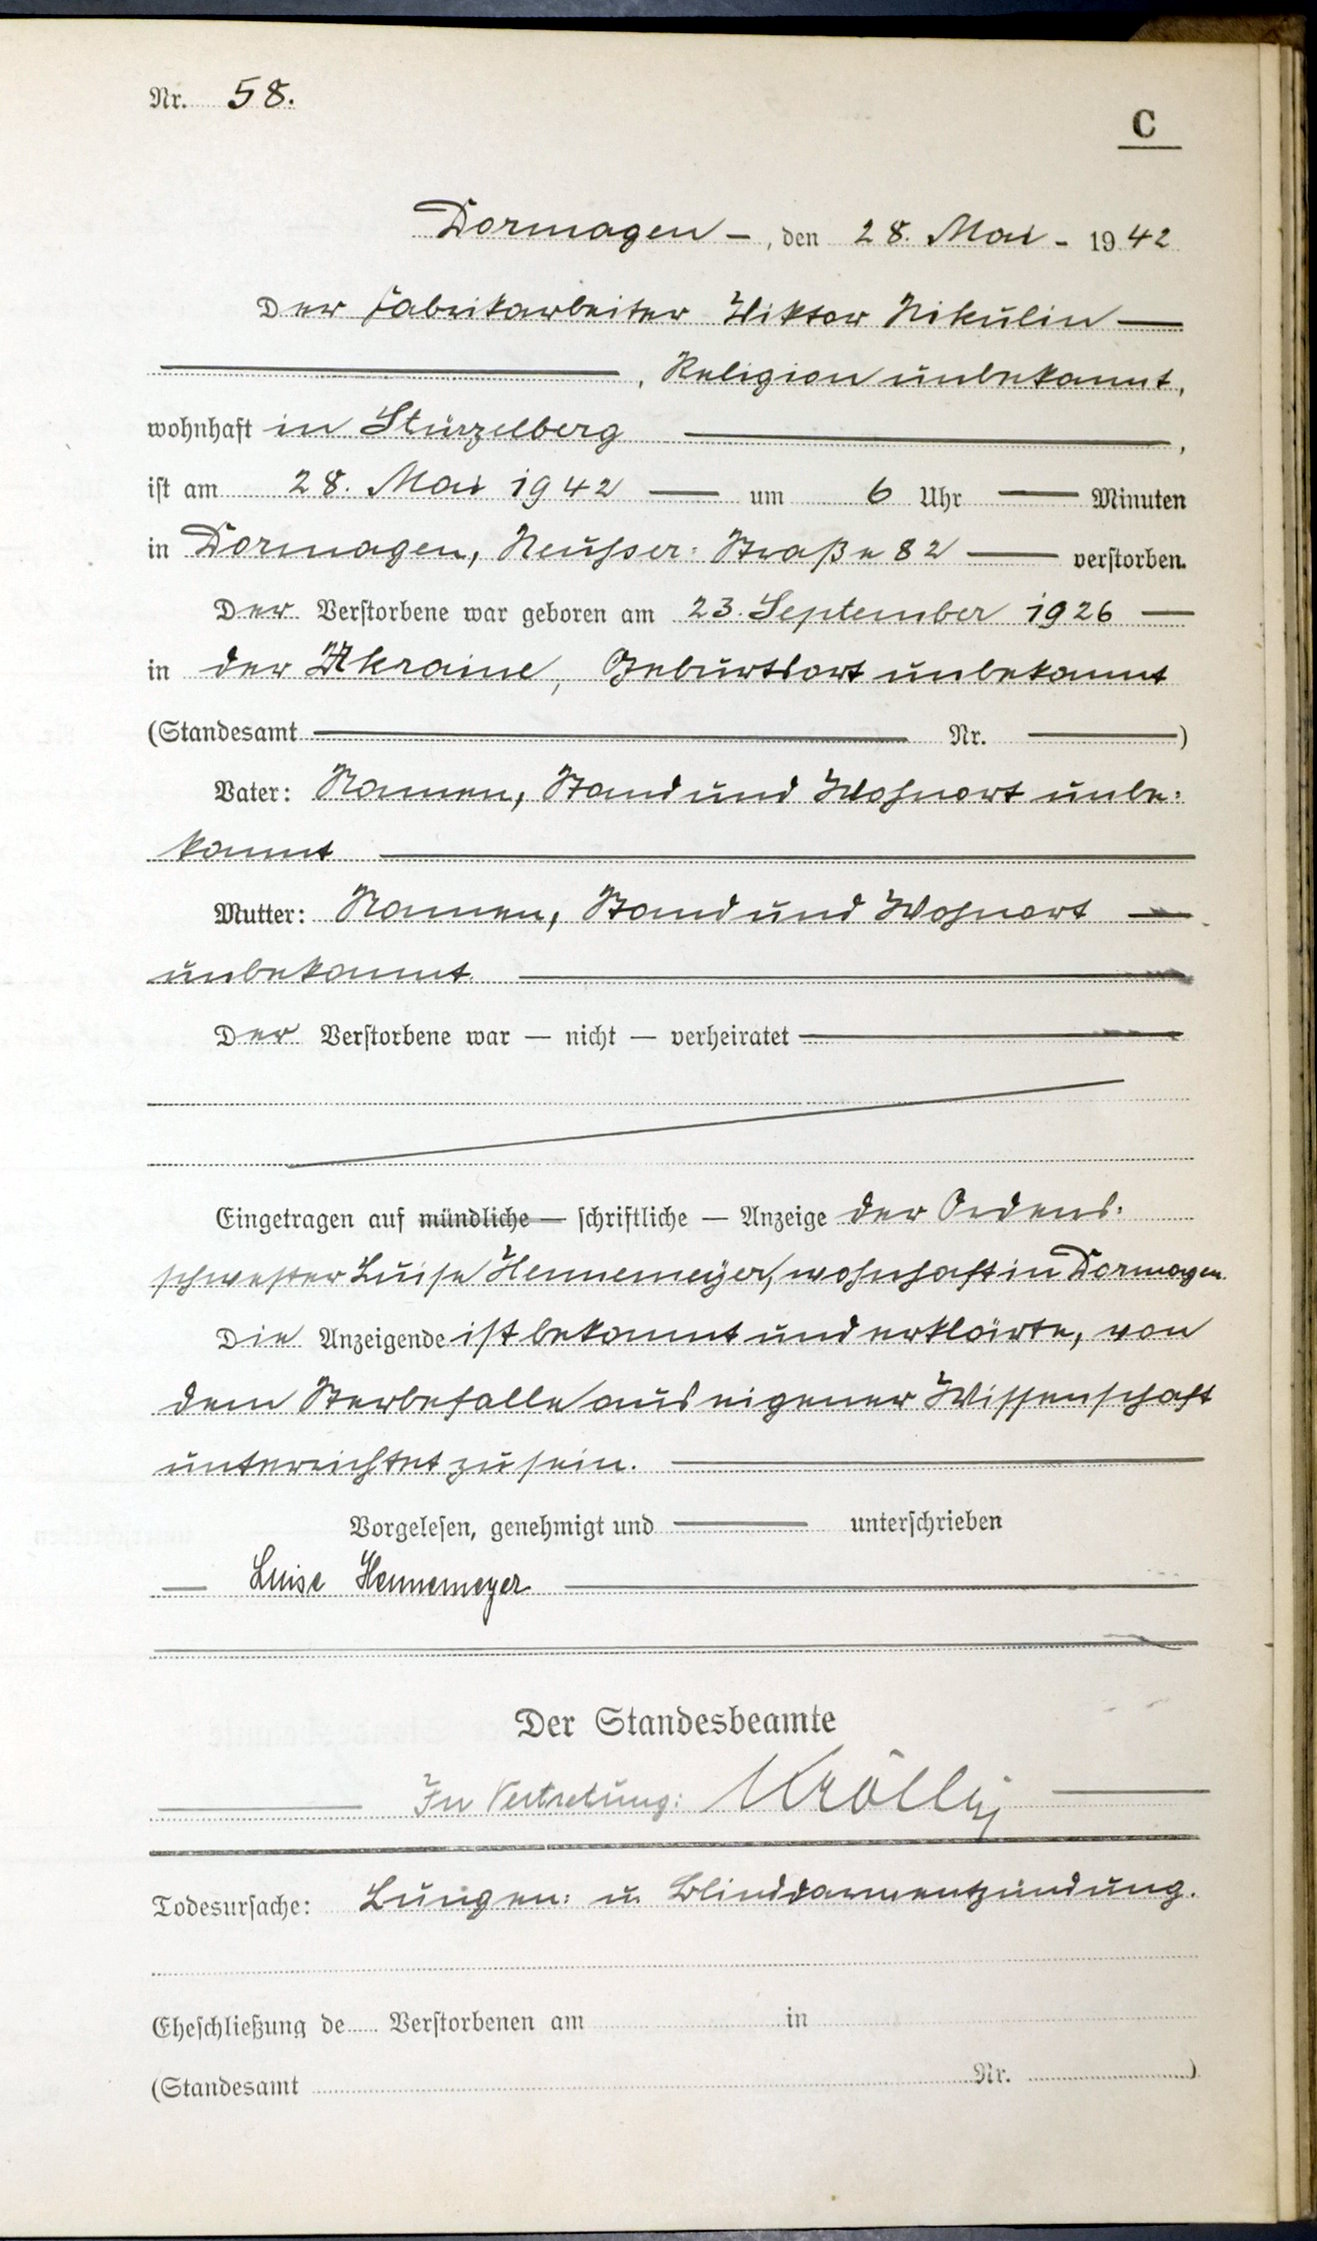 Nr. 58.
C
Dormagen –, den 28. Mai - 1942
Der Fabrikarbeiter Wiktor Nikulin —
—, Religion unbekannt,
wohnhaft in Stürzelberg —,
ist am 28. Mai 1942 — um 6 Uhr — Minuten
in Dormagen, Neusser: Straße 82 — verstorben.
Der Verstorbene war geboren am 23. September 1926 —
in der Ukraine, Geburtsort unbekannt
(Standesamt — Nr. —)
Vater: Namen, Stand und Wohnort unbe:
kannt —
Mutter: Namen, Stand und Wohnort —
unbekannt. —
Der Verstorbene war — nicht — verheiratet —
Eingetragen auf mündliche — schriftliche — Anzeige der Ordens:
schwester Luise Hennemeyer, wohnhaft in Dormagen.
Die Anzeigende ist bekannt und erklärte, von
dem Sterbefalle aus eigener Wissenschaft
unterrichtet zu sein. —
Vorgelesen, genehmigt und — unterschrieben
— Luise Hennemeyer —
Der Standesbeamte
— In Vertretung: —
Todesursache: Lungen: u. Blinddarmentzündung.
Eheschließung de..... Verstorbenen am in
(Standesamt Nr. )